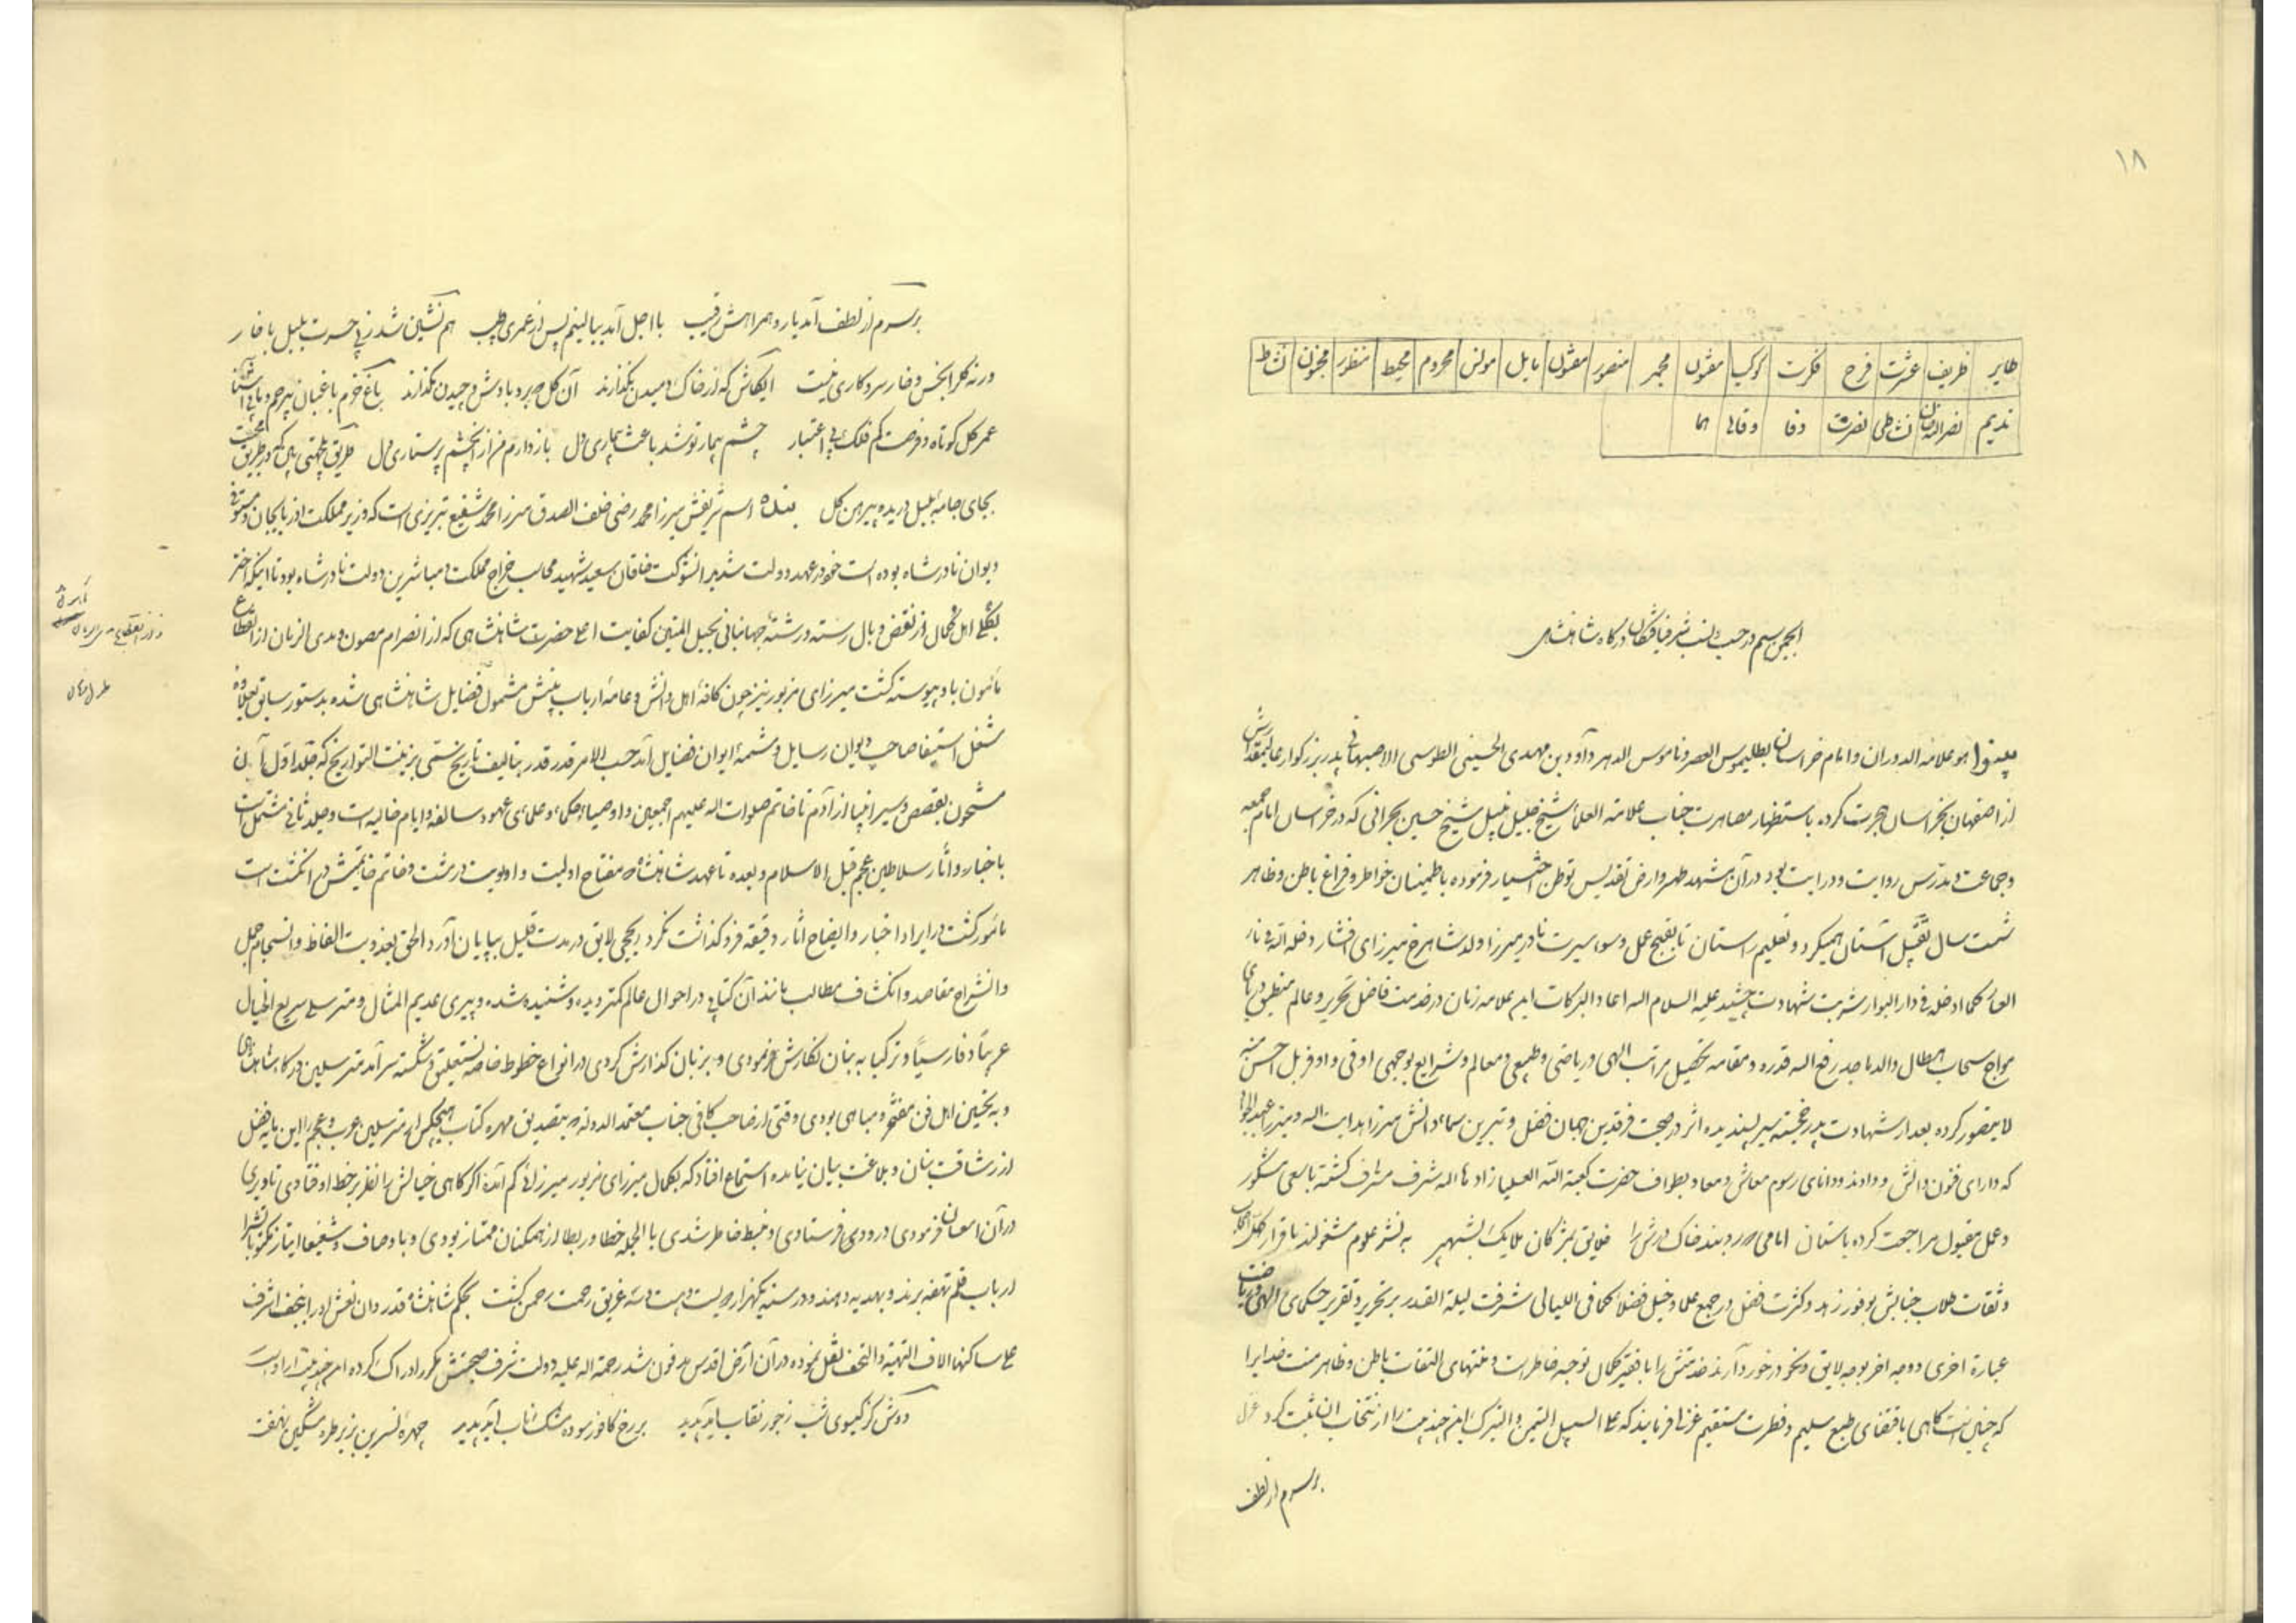 ۱۸
طایر ظریف عشرت فرح فکرت کوکب مفتون مجمر منصور مفتون مایل مونس محروم محیط منظور مخزون نشاط
ندیم نصرالله خان نشاطی نصرت وفا وقایع هما
انجمن سیم در حسب و نسب شرفیافتگان درگاه شاهنشاهی
بینوا هو علامه الدوران و امام خراسان بطلیموس العصر و ناموس الدهر داود بن مهدی الحسینی الطوسی الاصبهانی پدر بزرگوار عالیمقدارش
از اصفهان بخراسان هجرت کرده باستظهار مصاهرت جناب علامة العلمأ شیخ جلیل نبیل شیخ حسین بحرانی که در خراسان امام جمعه
و جماعت و مدرس روایت و درایت بود در آن مشهد مطهر و ارض تقدیس توطن اختیار فرموده باطمینان خواطر و فراغ باطن و ظاهر
شصت سال تقبیل آستان همیکرد و تعلیم راستان تا بقبیح عمل و سوء سیرت نادر میرزا ولد شاهرخ میرزای افشار دخله الله فی نار
کما ادخله فی دار البوار شربت شهادت چشید علیه السلام الله اعاد البرکات ایم علامه زمان در خدمت فاضل نحریر و عالم منطیق دریای
مواج سحاب هطال والد ماجد رفع الله قدره و مقامه تحصیل مراتب الهی و ریاضی و طبیعی و معالم و شرایع بوجهی اوفی و اوفر بل احسن منه
لایتصور کرده بعد از شهادت پدر خجسته سیر پسندیده اثر در صحبت فرقدین جهان فضل و نیرین سماء دانش میرزا هدایت الله و میرزا عبدالجواد
که دارای فنون دانش و داد و دانای رسوم معاش و معاد بطواف حضرت کعبة الله العلیا زاد ها الله شرف مشرف گشته با سعی مشکور
و عمل مقبول مراجعت کرده باستان امامی روبند خاک درش را خلایق بمژگان ملایک بشهپر به نشر علوم مشغولند باقرار کل اصحاب
و ثقات طلاب جنابش بوفور زهد و کثرت فضل در جمع علما و خیل فضلا کما فی اللیالی شرفت لیلة القدر بر تحریر و تقریر حکمای الهی و ریاضت
عبارة اخری و وجه اخر بوجه لایق و نحو در خور دارند خدمتش را با فقیر کمال توجه خاطر است و منتهای التفات باطن و ظاهر منت خدایرا
که چنین است گاهی باقتضای طبع سلیم و فطرت مستقیم غزلی فرمایند که علی السبیل التیمن و التبرک این چند بیت را از منتخب آن ثبت کرد غزل
برسرم از لطف
برسرم از لطف آمد یار و همراهش رقیب با اجل آمد ببالینم پس از عمری طبیب هم نشین شد زین حسرت بلبل با خار
ورنه گلرا بخس و خار سر و کاری نیست ایکاش که از خاک دمیدن بگذارند آن گل چو برد باد ش و چیدن نگذارند باغ خرم باغبان بیرحم و ما ناآشنا
عمر گل کوتاه و فرصت کم فلک بی اعتبار چشم بیمار تو شد باعث بیماری دل باز دارم من از آن چشم پرستاری دل طریق یکجهتی بین که در طریق محبت
بجای جامه بلبل دریده پیرهن گل بنده اسم شریفش میرزا محمد رضی خلف الصدق میرزا محمد شفیع تبریزی است که وزیر مملکت اذربایجان و مستوفی
دیوان نادرشاه بوده است خود در عهد دولت شدید الشوکت خاقان سعید شهید محاسب خراج مملکت و مباشرین دولت نادرشاه بود تا اینکه اختر
اهل کمال از نقض و بال رسته و رشتهٔ جهانبانی بحبل المتین کفایت اعلیحضرت شاهنشاهی که از انصرام مصون و مدی الزمان از انقطاع
مأمون باد پیوسته گشت میرزای مزبور نیز چون کافهٔ اهل دانش و عامهٔ ارباب بینش مشمول فضایل شاهنشاهی شده بدستور سابق بعلاوه
شغل استیفا صاحب دیوان رسایل و شمسهٔ ایوان فضایل آمد حسب الامر قدر قدر بتالیف تاریخ مسمی بزینت التواریخ که جلد اول آن
مشحون بقصص و سیر انبیا از آدم تا خاتم صلوات الله علیهم اجمعین و اوصیا و حکما و علمای عهود سالفه و ایام خالیه است و جلد ثانی مشتمل است
باخبار و آثار سلاطین عجم قبل الاسلام و بعده تا عهد شاهنشاه مفتاح اولیت و اولویت در مشت و خاتم خاتمیتش در انگشت است
مأمور گشت در ایراد اخبار و ایضاح اثار دقیقه فروگذاشت نکرد بنحوی لایق در مدت قلیل بپایان آورد الحق بعذوبت الفاظ و انسجام جمل
و انشراح مقاصد و انکشاف مطالب مانند آن کتابی در احوال عالم کمتر دیده و شنیده شده دبیری عدیم المثال و مترسلی سریع الخیال
عربیاً و فارسیاً و ترکیاً به بنان نگارش فرمودی و بزبان گذارش کردی در انواع خطوط خاصه نستعلیق و شکسته سرآمد مترسلین درگاه شاهنشاهی
و به تحسین اهل فن مفتخر و مباهی بودی وقتی از صاحب کافی جناب معتمد الدوله که بتصدیق مهره کتاب هیچکس از مترسلین عرب و عجم را این پایه فضل
از رشاقت بنان و بلاغت بیان نیامده استماع افتاد که بکمال میرزای مزبور میرزائی کم آمده اگر گاهی خیالش را نظر بر خط او فتادی تا دیری
در آن امعان فرمودی درودی فرستادی و غبطه خاطر شدی بالجمله خطا و ربطا از همگنان ممتاز بودی و با وصاف و شفیعا انباز
ارباب قلم تحفه برند و بهدیه دهند و در سنه یکهزار و دویست و بیست و سه غریق رحمت رحمن گشت بحکم شاهنشاه قدردان نعش او را بنجف اشرف
علی ساکنها الاف التهیة و التحف نقل نموده در آن ارض اقدس مدفون شد رحمة الله علیه دولت شرف صحبتش مکرر ادراک کرده ام این چند بیت از اوست
دوش کز گیسوی شب زحور نقاب آید پدید بر رخ کافور سوده مشک ناب آید پدید چهرهٔ نسرین بزیر طره مشکین نهفت